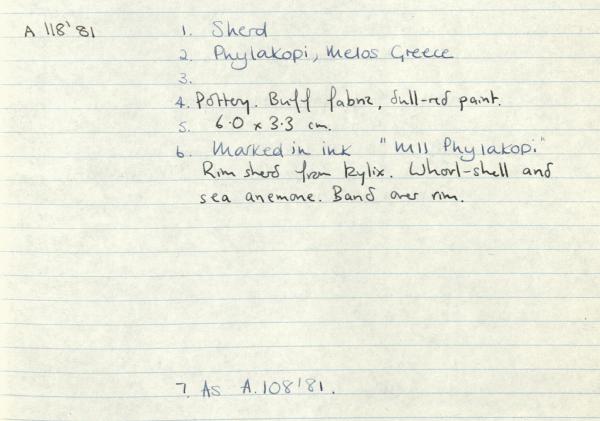 A 118'81
1. Sherd
2. Phylakopi, Melos Greece
3.
4. Pottery. Buff fabric, dull-red paint.
5. 6.0 x 3.3 cm.
6. Marked in ink "MII Phylakopi"
Rim sherd from kylix. Whorl-shell and
sea anemone. Band over rim.
7. As A.108'81.